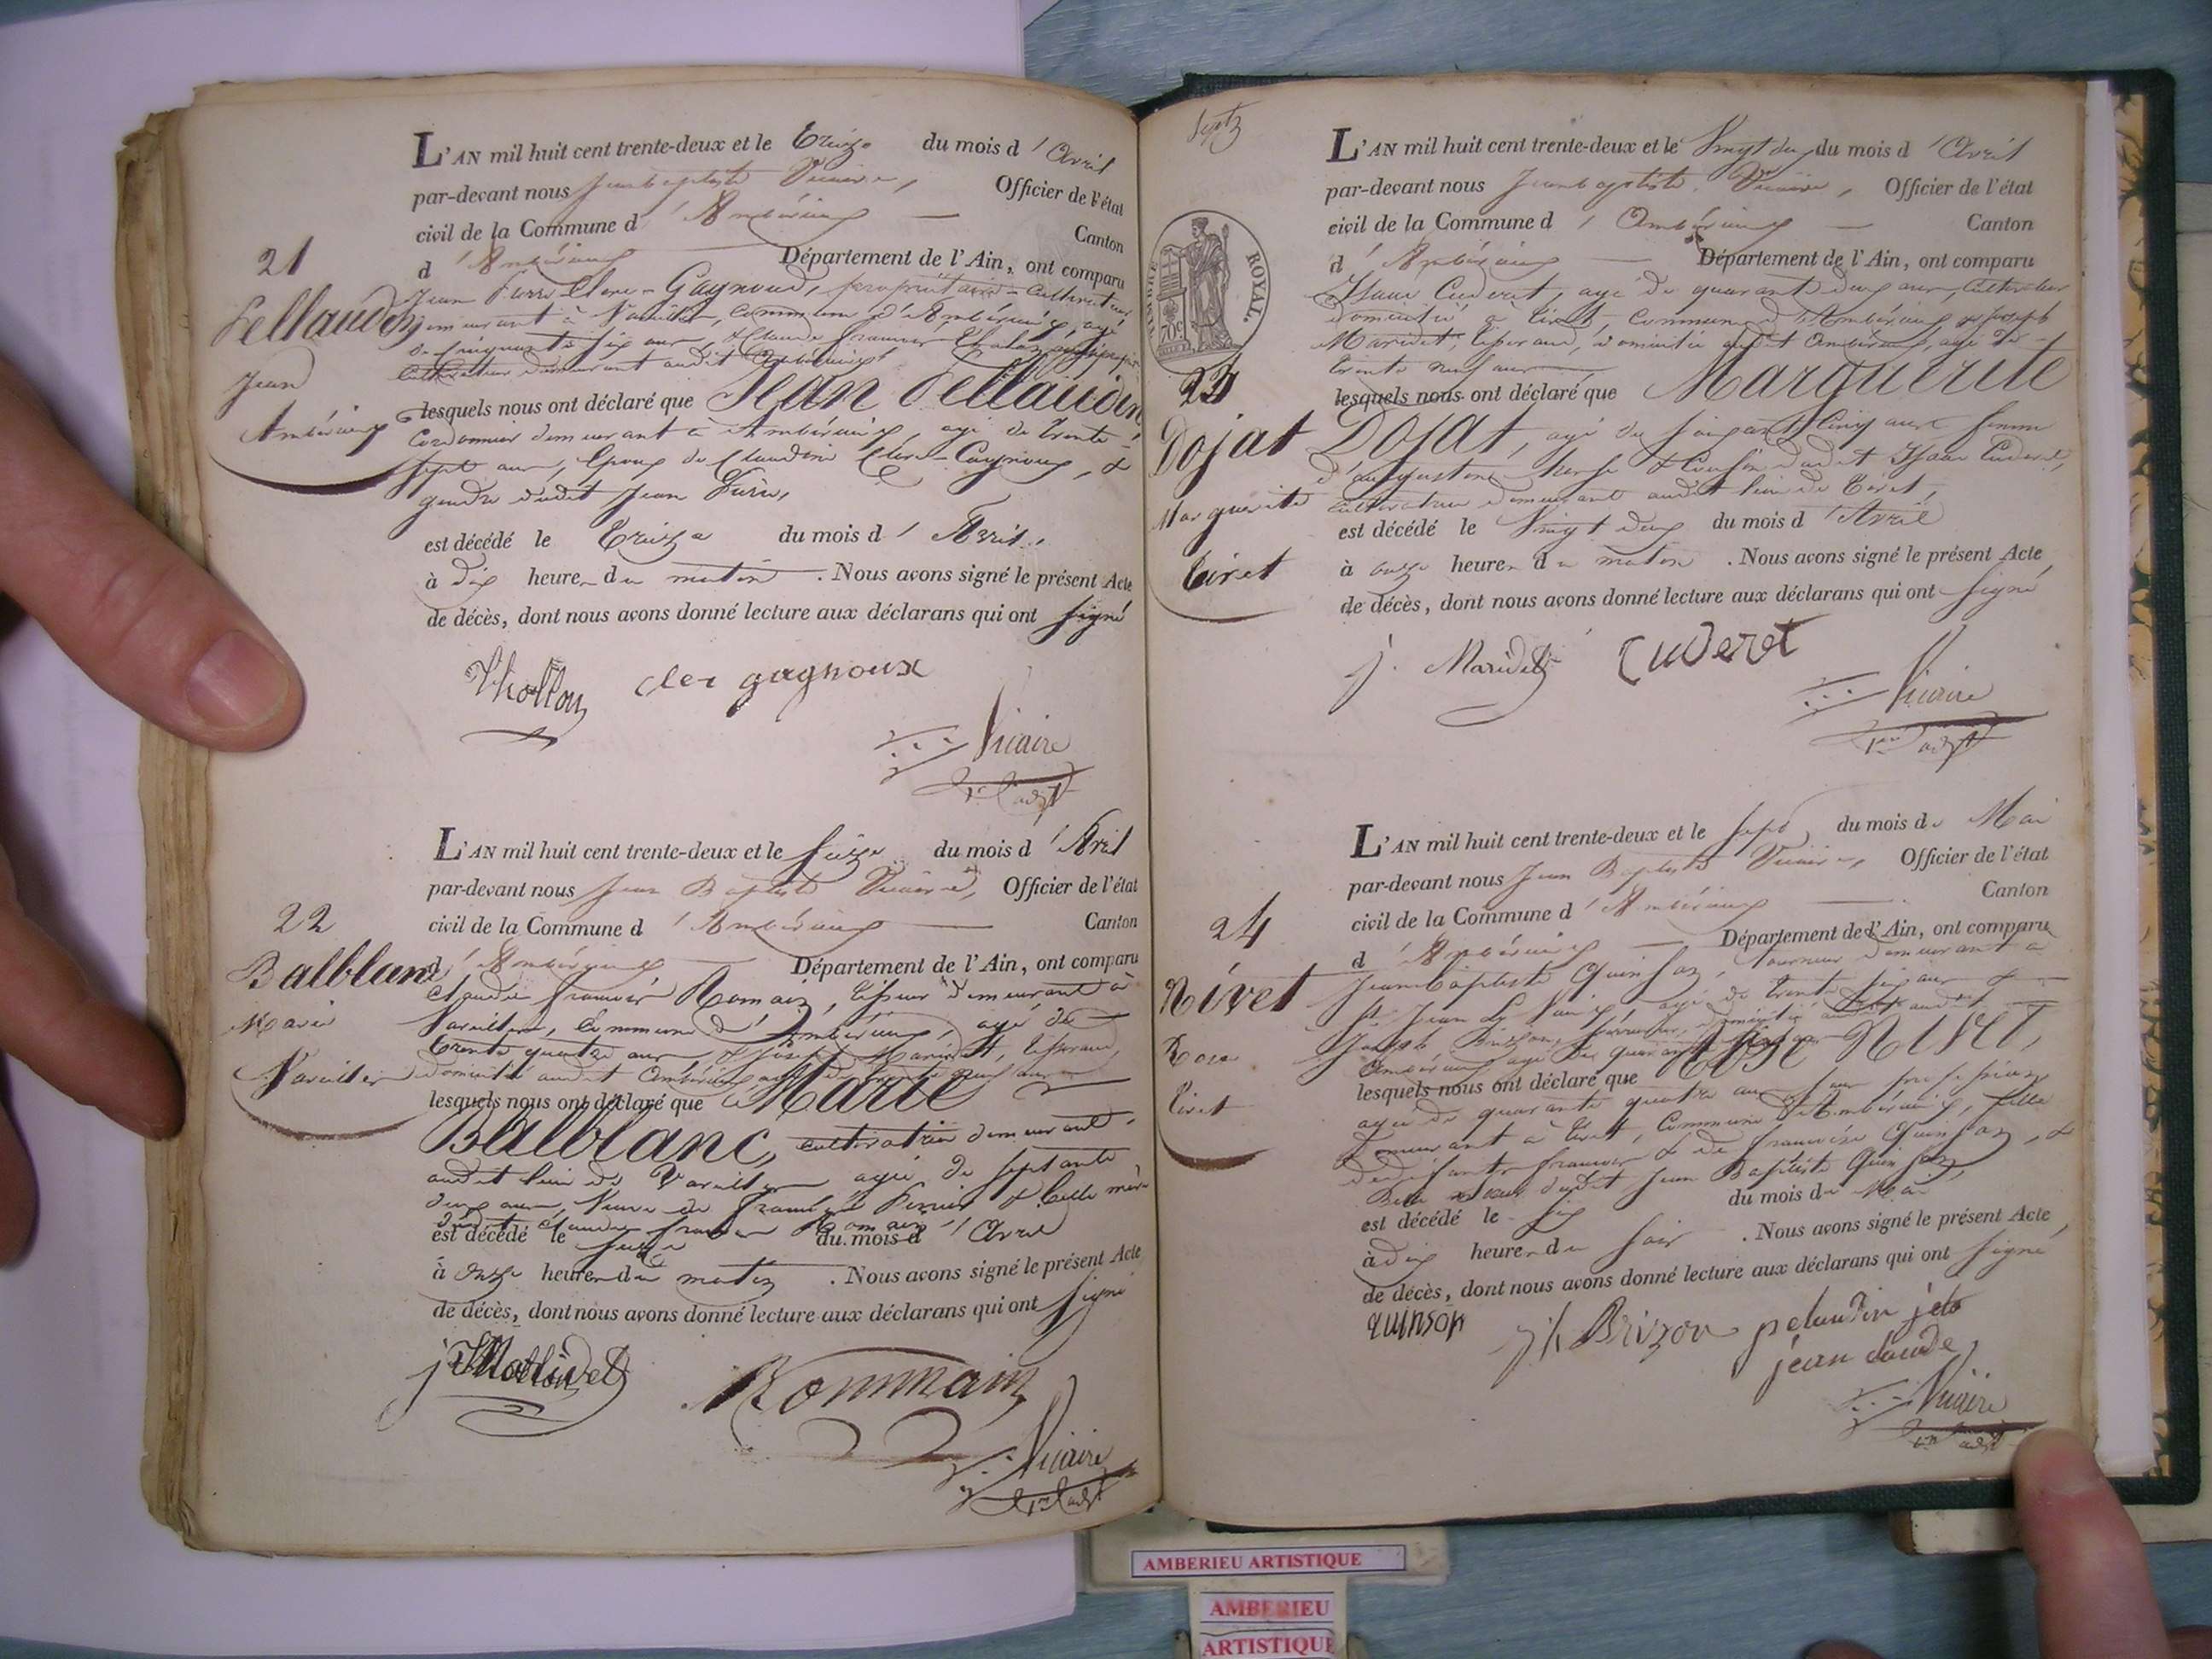 L'AN mil huit cent trente-deux et le treize du mois d'Avril
par-devant nous Jean baptiste Vicaire, Officier de l'état
civil de la Commune d'Ambérieux — Canton
d'Ambérieux — Département de l'Ain, ont comparu
21
Pellaudin
Jean
Ambérieux
Jean Pierre Clerc-Gagnoud, propriétaire-cultivateur
demeurant à Vareilles, commune d'Ambérieux, agé
de cinquante six ans, & Claude françois Thollon
cultivateur demeurant audit Ambérieux
lesquels nous ont déclaré que Jean Pellaudin
Cordonnier demeurant à Ambérieux, agé de trente
sept ans, Epoux de Claudine Clerc-Gagnoux, &
gendre dudit Jean Pierre,
est décédé le treize du mois d'Avril,
à dix heures du matin. Nous avons signé le présent Acte
de décès, dont nous avons donné lecture aux déclarans qui ont signé
Thollon
cler gagnoux
Vicaire
1er adjt
L'AN mil huit cent trente-deux et le seize du mois d'Avril
par-devant nous Jean Baptiste Vicaire, Officier de l'état
civil de la Commune d'Ambérieux — Canton
d'Ambérieux — Département de l'Ain, ont comparu
22
Balblanc
Marie
Vareilles
Claude françois Romain, tisseur demeurant à
Vareilles, Commune d'Ambérieux, agé de
trente quatre ans, & Joseph Maridet, tisserand,
domicilié audit Ambérieux, agé de trente neuf ans
lesquels nous ont déclaré que Marie
Balblanc, cultivatrice demeurant
audit lieu de Vareilles agée de septante
deux ans, Veuve de Perrier & belle mère
dudit Claude françois Romain
est décédé le seize du mois d'Avril
à onze heures du matin. Nous avons signé le présent Acte
de décès, dont nous avons donné lecture aux déclarans qui ont signé
j Maridet
Rommain
Vicaire
1er adjt
Sept
TIMBRE ROYAL.
70c
L'AN mil huit cent trente-deux et le Vingt deux du mois d'Avril
par-devant nous Jean baptiste Vicaire, Officier de l'état
civil de la Commune d'Ambérieux — Canton
d'Ambérieux — Département de l'Ain, ont comparu
23
Dojat
Marguerite
tiret
Isaac Cuderet, agé de quarante deux ans, Cultivateur
domicilié à tiret, commune d'Ambérieux & Joseph
Maridet, tisserand, domicilié audit Ambérieux, agé de
trente neuf ans
lesquels nous ont déclaré que Marguerite
Dojat, agé de soixante cinq ans femme
d'augustin & Cousine dudit Isaac Cuderet,
cultivatrice demeurant audit lieu de tiret,
est décédé le Vingt deux du mois d'Avril
à onze heures du matin. Nous avons signé le présent Acte
de décès, dont nous avons donné lecture aux déclarans qui ont signé
j. Maridet
Cuderet
Vicaire
1er adjt
L'AN mil huit cent trente-deux et le sept du mois de Mai
par-devant nous Jean Baptiste Vicaire, Officier de l'état
civil de la Commune d'Ambérieux — Canton
d'Ambérieux — Département de l'Ain, ont comparu
24
Nivet
Rose
tiret
Jean Baptiste Quinson, tourneur demeurant à
St Jean le Vieux, agé de trente six ans &
Joseph Brizon, domicilié audit
Ambérieux agé de quarante
lesquels nous ont déclaré que Rose Nivet,
agée de quarante quatre ans, sans profession
demeurant à tiret, Commune d'Ambérieux, fille
de françois & de françoise Quinson, &
Belle soeur dudit Jean Baptiste Quinson,
est décédé le six du mois de Mai
à dix heures du soir. Nous avons signé le présent Acte
de décès, dont nous avons donné lecture aux déclarans qui ont signé
quinson
jh Brizon
pelaudin
jean claude
Vicaire
1er adjt
AMBERIEU ARTISTIQUE
AMBERIEU
ARTISTIQUE